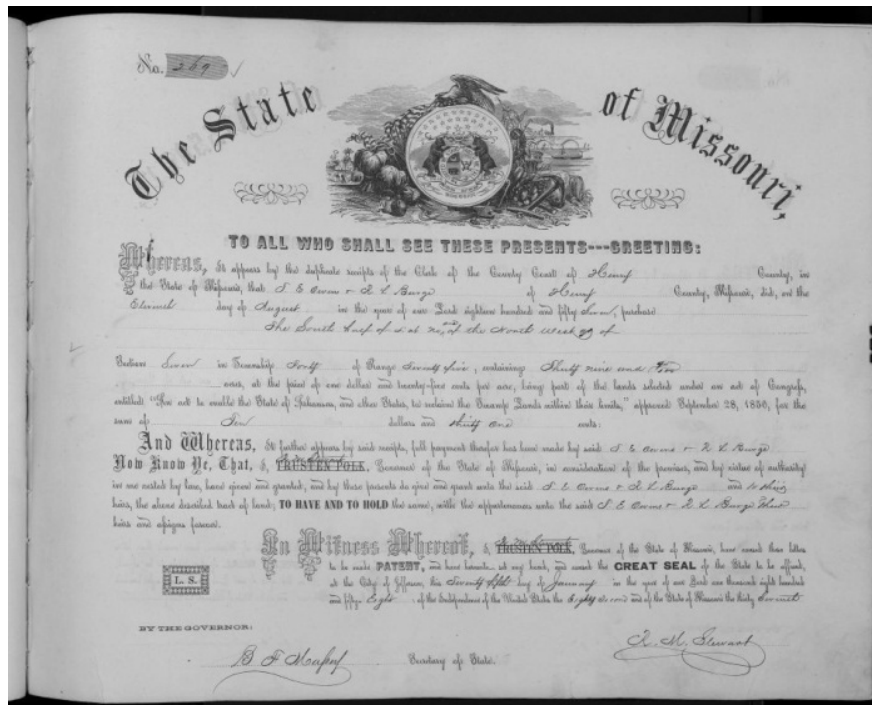 No. 269
The State of Missouri,
TO ALL WHO SHALL SEE THESE PRESENTS---GREETING:
Whereas, It appears by the duplicate receipts of the Clerk of the County Court of Henry County, in
the State of Missouri, that S E Owens & R L Burge of Henry County, Missouri, did, on the
Eleventh day of August in the year of our Lord eighteen hundred and fifty Seven, purchase
The South half of of the North West qr of
Section Seven in Township Forty of Range Twenty five, containing Thirty nine and
acres, at the price of one dollar and twenty-five cents per acre, being part of the lands selected under an act of Congress,
entitled "An act to enable the State of Arkansas, and other States, to reclaim the Swamp Lands within their limits," approved September 28, 1850, for the
sum of dollars and thirty one cents:
And Whereas, It further appears by said receipts, full payment therefor has been made by said S E Owens & R L Burge
Now Know Ye, That, I, TRUSTEN POLK, Governor of the State of Missouri, in consideration of the premises, and by virtue of authority
in me vested by law, have given and granted, and by these presents do give and grant unto the said S E Owens & R L Burge and to their
heirs, the above described tract of land; TO HAVE AND TO HOLD the same, with the appurtenances unto the said S E Owens & R L Burge their
heirs and assigns forever.
In Witness Whereof, I, TRUSTEN POLK, Governor of the State of Missouri, have caused these letters
to be made PATENT, and have hereunto set my hand, and caused the GREAT SEAL of the State to be affixed,
at the City of Jefferson, this Twenty fifth day of January in the year of our Lord one thousand eight hundred
and fifty Eight, of the Independence of the United States the Eighty Second and of the State of Missouri the thirty Seventh
L. S.
BY THE GOVERNOR:
R. M. Stewart
B F Massey Secretary of State.